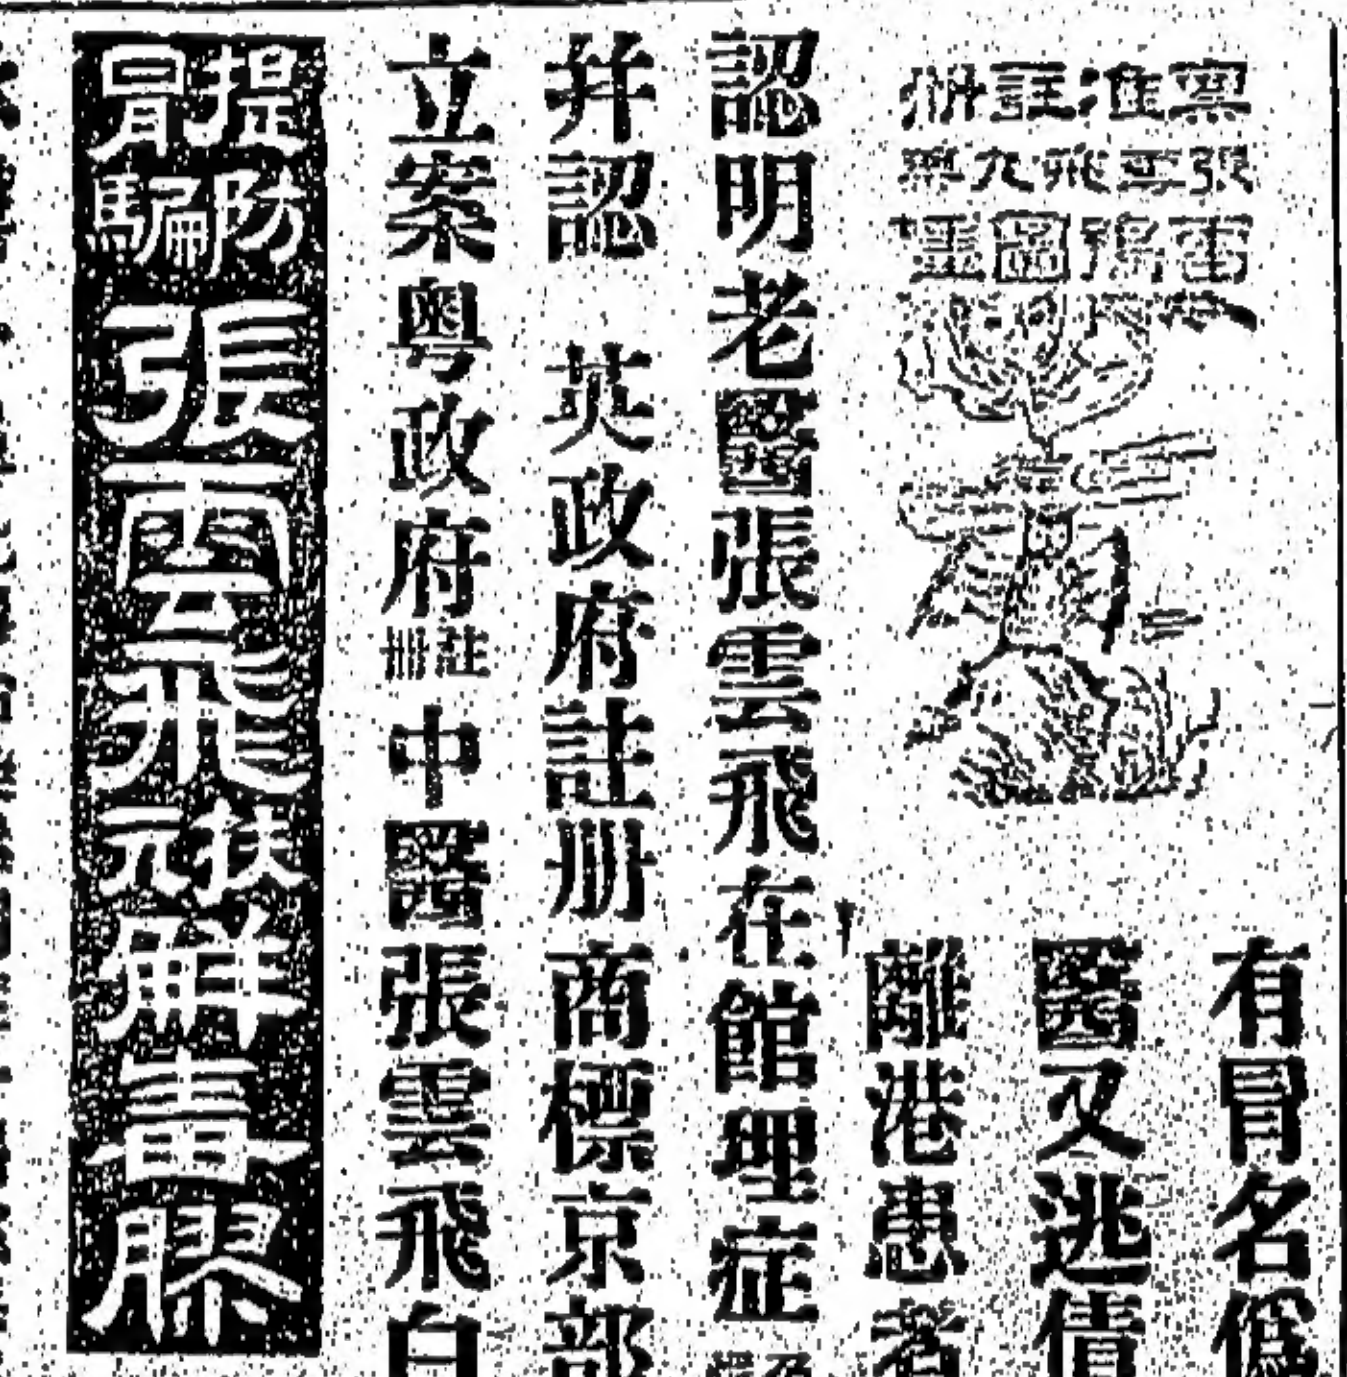 稟准註册
張雲飛九藥
有冒名偽
醫又逃債
離港患者
認明老醫張雲飛在館理症
并認 英政府註册商標京部
立案粤政府註册中醫張雲飛白
提防冒騙張雲飛扶元解毒膠